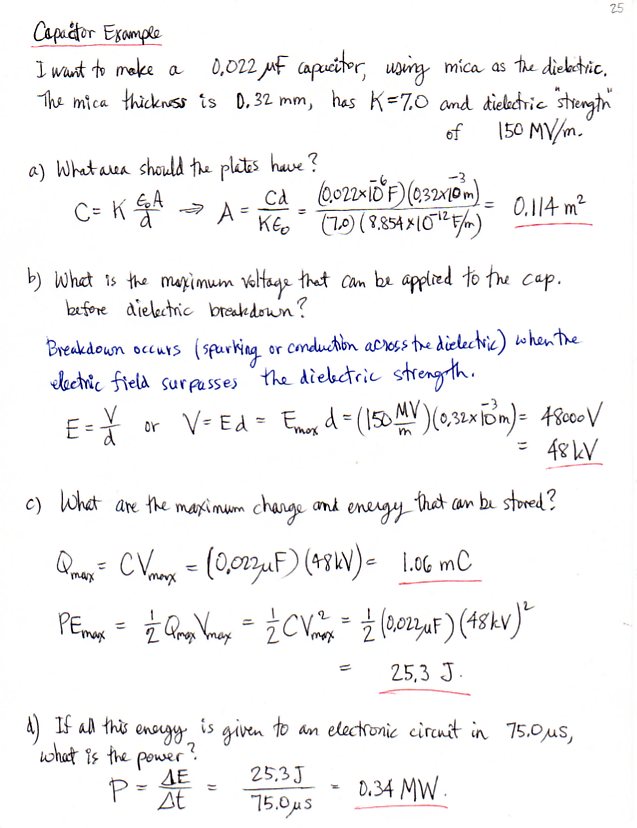 25
Capacitor Example
I want to make a 0.022 µF capacitor, using mica as the dielectric.
The mica thickness is 0.32 mm, has K=7.0 and dielectric "strength"
of 150 MV/m.
a) What area should the plates have?
C = K ε₀A/d ⇒ A = Cd/Kε₀ = (0.022×10⁻⁶F)(0.32×10⁻³m)/(7.0)(8.854×10⁻¹² F/m) = 0.114 m²
b) What is the maximum voltage that can be applied to the cap.
before dielectric breakdown?
Breakdown occurs (sparking or conduction across the dielectric) when the
electric field surpasses the dielectric strength.
E = V/d or V = Ed = Emax d = (150 MV/m)(0.32×10⁻³m) = 48000V
= 48 kV
c) What are the maximum charge and energy that can be stored?
Qmax = CVmax = (0.022µF)(48kV) = 1.06 mC
PEmax = ½ Qmax Vmax = ½ CVmax² = ½ (0.022µF)(48kV)²
= 25.3 J.
d) If all this energy is given to an electronic circuit in 75.0µs,
what is the power?
P = ΔE/Δt = 25.3J/75.0µs = 0.34 MW.